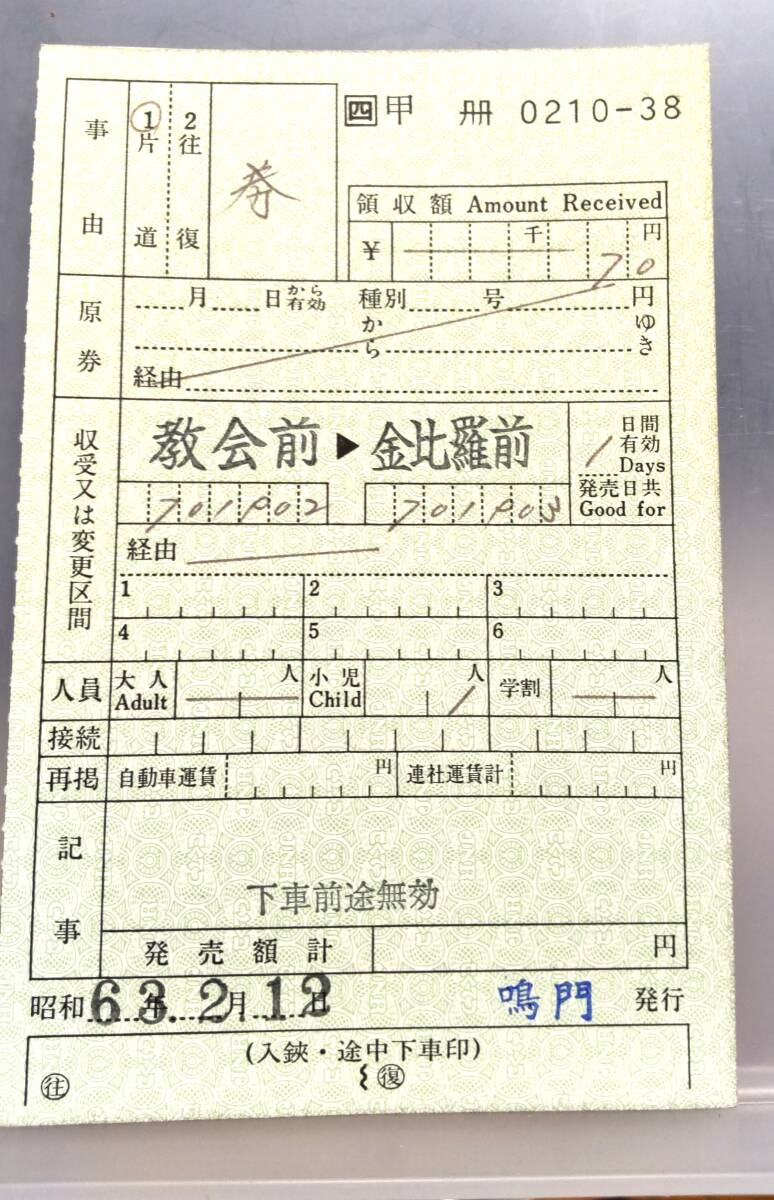 四 甲 冊 0210-38
事由
1 片道
2 往復
券
領収額 Amount Received
¥ 千 円
70
原券
月 日 から有効 種別 号 円
から ゆき
経由
収受又は変更区間
教会前 ▶ 金比羅前
701902 701903
1 日間有効 Days
発売日共 Good for
経由
1 2 3
4 5 6
人員 大人 Adult 人 小児 Child 人 学割 人
接続
再掲 自動車運賃 円 連社運賃計 円
記事
下車前途無効
発売額計 円
昭和 63年 2月 12日 鳴門 発行
(入鋏・途中下車印)
往 復